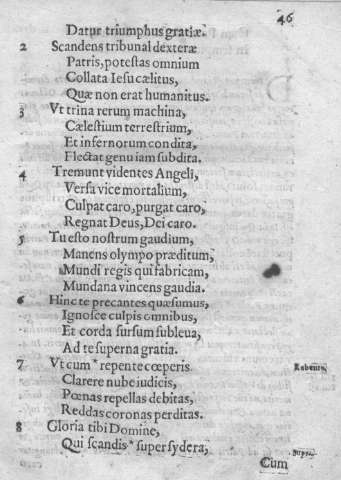 46
Datur triumphus gratiæ.
2 Scandens tribunal dexteræ
Patris, potestas omnium
Collata Iesu cælitus,
Quæ non erat humanitus.
3 Vt trina rerum machina,
Cælestium terrestrium,
Et infernorum condita,
Flectat genu iam subdita.
4 Tremunt videntes Angeli,
Versa vice mortalium,
Culpat caro, purgat caro,
Regnat Deus, Dei caro.
5 Tu esto nostrum gaudium,
Manens olympo præditum,
Mundi regis qui fabricam,
Mundana vincens gaudia.
6 Hinc te precantes quæsumus,
Ignosce culpis omnibus,
Et corda sursum subleua,
Ad te superna gratia.
7 Vt cum * repente cœperis
Clarere nube iudicis,
Pœnas repellas debitas,
Reddas coronas perditas.
8 Gloria tibi Domine,
Qui scandis * super sydera,
Cum